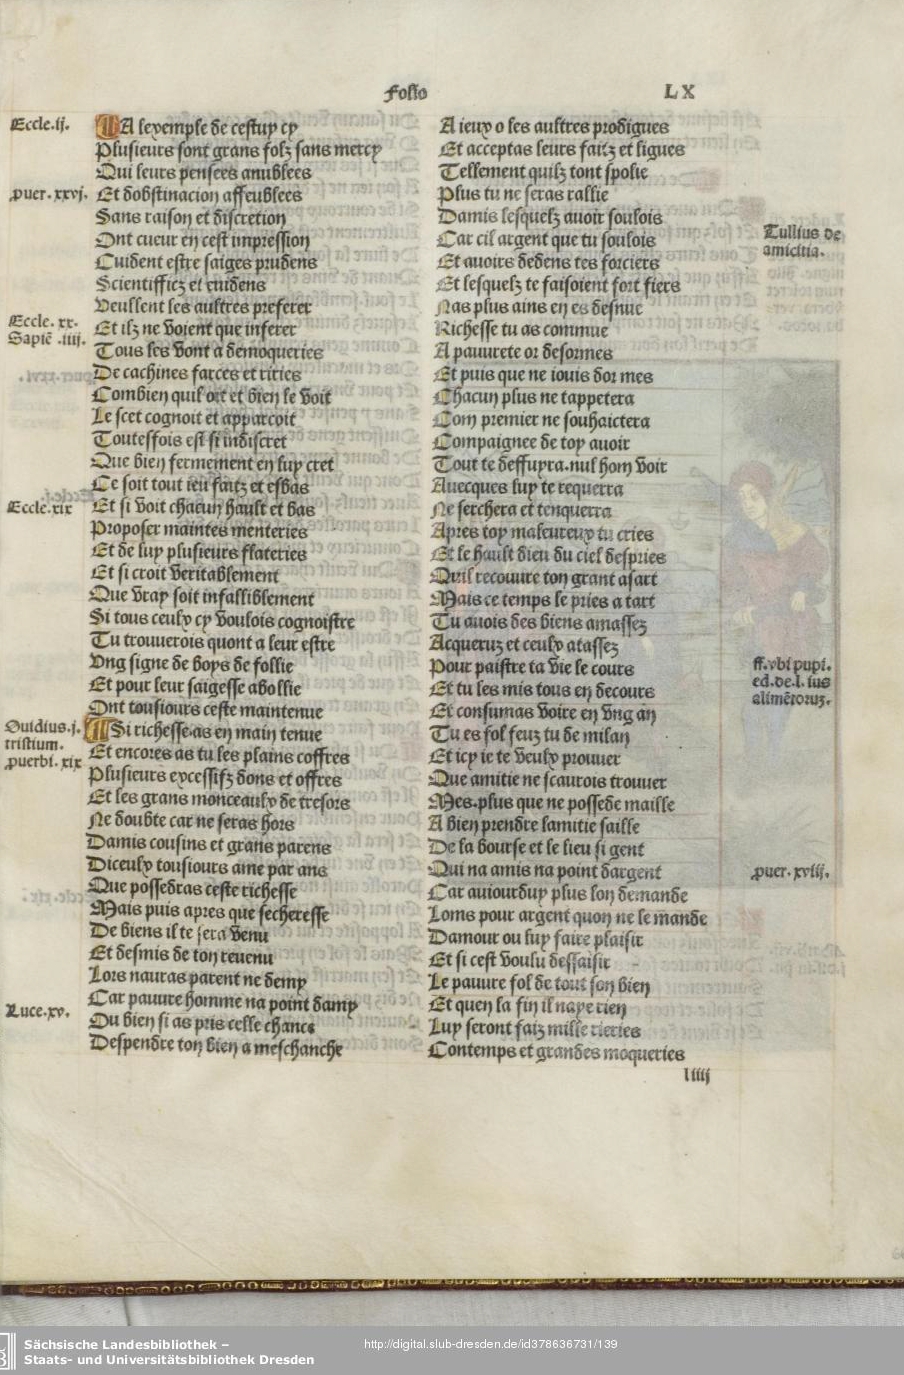 Folio LX
Eccle.ij.
A lexemple de cestuy cy
Plusieurs sont grans folz sans mercy
Qui leurs pensees anublees
puer.xxvj.
Et dobstinacion affeublees
Sans raison et discretion
Ont cueur en cest impression
Cuident estre saiges prudens
Scientificz et euidens
Veullent les aultres preferer
Eccle.xx.
Sapiē.iiij.
Et ilz ne voient que inferer
Tous les vont a demoqueries
De cachines farces et riries
Combien quil oit et bien le voit
Le scet cognoit et apparcoit
Toutesfois est si indiscret
Que bien fermement en luy cret
Ce soit tout ieu faitz et esbas
Eccle.xix
Et si voit chacun hault et bas
Proposer maintes menteries
Et de luy plusieurs flateries
Et si croit veritablement
Que vray soit infalliblement
Si tous ceulx cy voulois cognoistre
Tu trouuerois quont a leur estre
Vng signe de boys de follie
Et pour leur saigesse abollie
Ont tousiours ceste maintenue
Ouidius.j.
tristium.
puerbi.xix
Si richesse as en main tenue
Et encores as tu les plains coffres
Plusieurs excessifz dons et offres
Et les grans monceaulx de tresors
Ne doubte car ne seras hors
Damis cousins et grans parens
Diceulx tousiours ame par ans
Que possedras ceste richesse
Mais puis apres que secheresse
De biens il te sera venu
Et desmis de ton reuenu
Lors nauras parent ne demy
Car pauure homme na point damy
Luce.xv.
Ou bien si as pris celle chance
Despendre ton bien a meschanche
A ieux o les aultres prodigues
Et acceptas leurs faitz et ligues
Tellement quilz tont spolie
Plus tu ne seras rallie
Damis lesquelz auoir soulois
Tullius de
amicitia.
Car cil argent que tu soulois
Et auoirs dedens tes forciers
Et lesquelz te faisoient fort fiers
Nas plus ains en es desnue
Richesse tu as commue
A pauurete or desormes
Et puis que ne iouis dor mes
Chacun plus ne tappetera
Com premier ne souhaictera
Compaignee de toy auoir
Tout te deffuyra.nul hom voir
Auecques luy te requerra
Ne serchera et tenquerra
Apres toy maleureux tu cries
Et le hault dieu du ciel despries
Quil recouure ton grant asart
Mais ce temps le pries a tart
Tu auois des biens amassez
Acqueruz et ceulx atassez
ff.vbi pupi.
ed.de.l.ius
alimētoruz.
Pour paistre ta vie le cours
Et tu les mis tous en decours
Et consumas voire en vng an
Tu es fol feuz tu de milan
Et icy ie te veulx prouuer
Que amitie ne scaurois trouuer
Mes.plus que ne possede maille
A bien prendre lamitie faille
De la bourse et le lieu si gent
puer.xviij.
Qui na amis na point dargent
Car auiourduy plus lon demande
Loms pour argent quon ne le mande
Damour ou luy faire plaisir
Et si cest voulu dessaisir
Le pauure fol de tout son bien
Et quen la fin il naye rien
Luy seront faiz mille rieries
Contemps et grandes moqueries
liiij
Sächsische Landesbibliothek –
Staats- und Universitätsbibliothek Dresden
http://digital.slub-dresden.de/id378636731/139